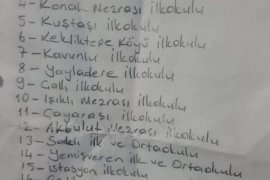 4- Konak Mezrası ilkokulu
5- Kuştaşı ilkokulu
6- Kekliktepe Köyü ilkokulu
7- Kavunlu ilkokulu
8- Yayladere ilkokulu
9- Çallı ilkokulu
10- Işıklı Mezrası ilkokulu
11- Çayarası ilkokulu
12- Akbulut Mezrası ilkokulu
13- Saklı ilk ve Ortaokulu
14- Yemişveren ilk ve Ortaokulu
15- istasyon ilkokulu